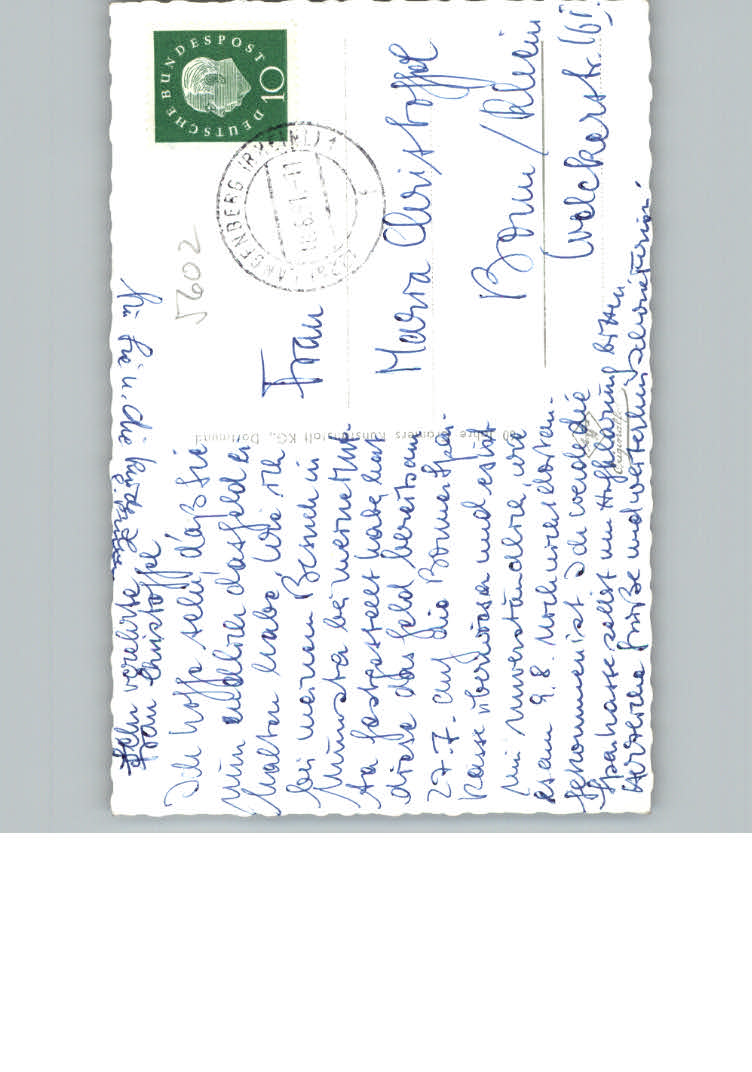 Sehr verehrte
Frau Christoffel
Ich hoffe sehr, daß Sie
nun endlich das Geld er-
halten habe. Wie ich
bei meinem Besuch in
Münster bei meiner
festgestellt habe, hat
diese das Geld bereits am
27.7. auf die Bonner
Kasse überwiesen und es ist
mir unverständlich wie
es am 9.8. noch nicht dort an-
gekommen ist. Ich werde die
Sparkasse selbst um Aufklärung bitten.
Herzliche Grüße und weiterhin
für Sie u. die
Frau
Maria Christoffel
Bonn / Rhein
Welckerstr.
5602
DEUTSCHE BUNDESPOST
10
LANGENBERG (RHEINL)
Cramers Kunstanstalt KG., Dortmund